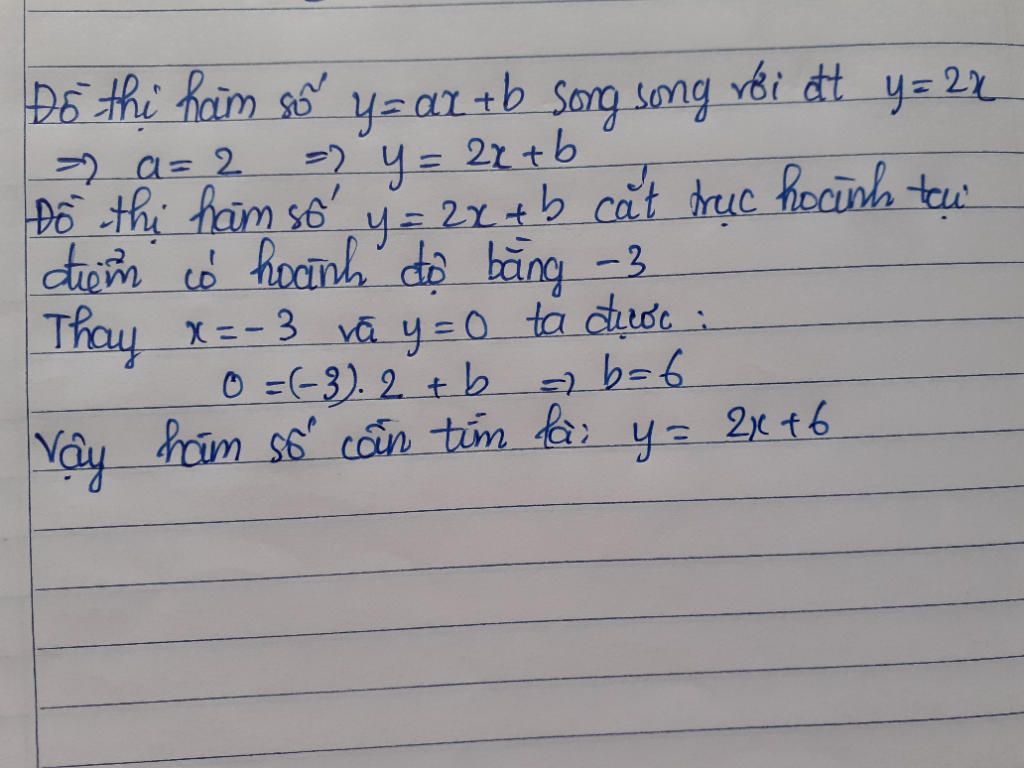 Đồ thị hàm số y=ax+b song song với đt y=2x
=> a=2 => y=2x+b
Đồ thị hàm số y=2x+b cắt trục hoành tại
điểm có hoành độ bằng -3
Thay x=-3 và y=0 ta được:
0=(-3).2+b => b=6
Vậy hàm số cần tìm là: y=2x+6